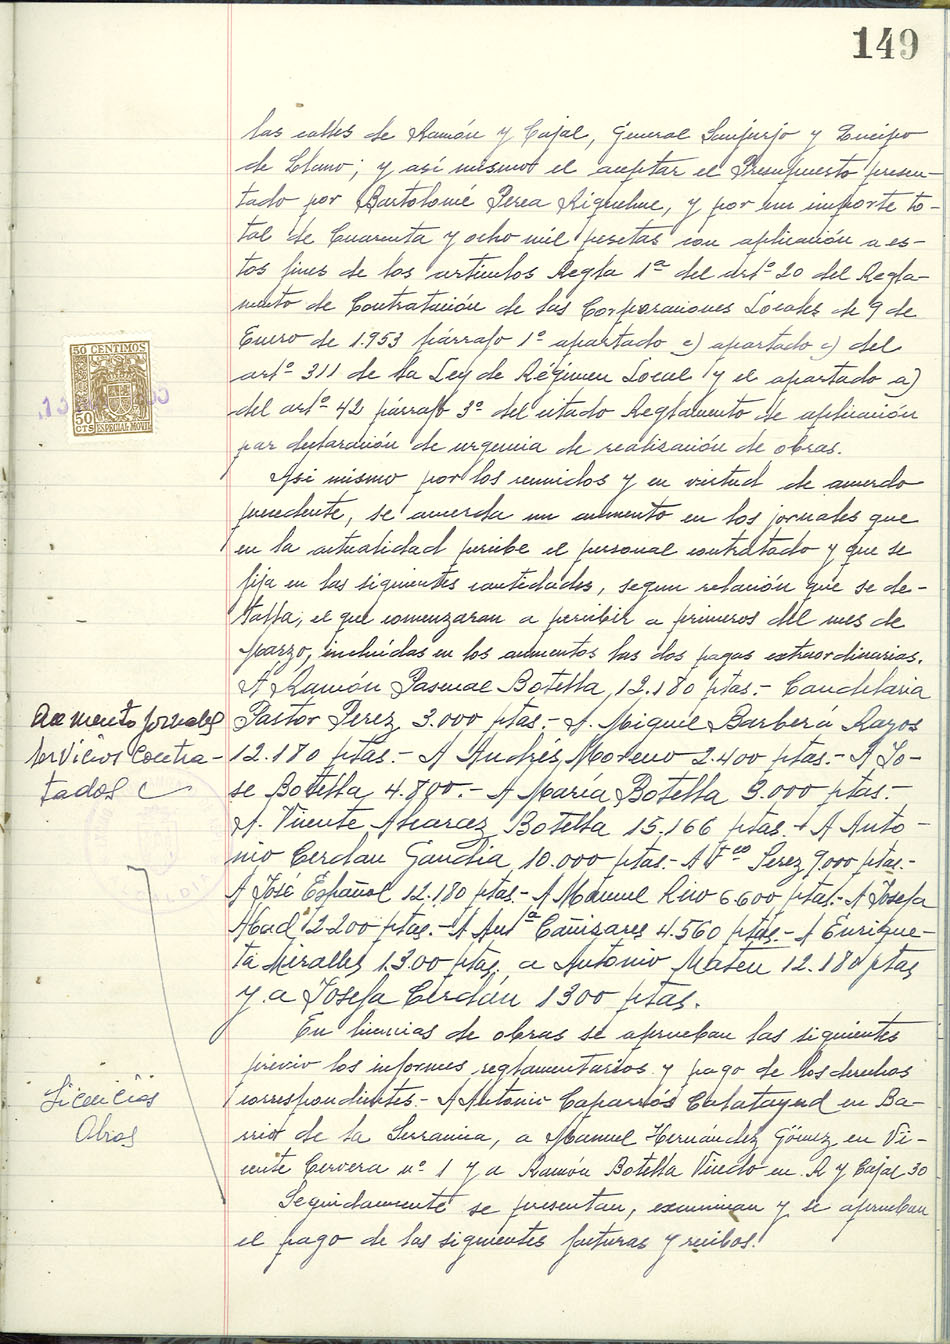 149
las calles de Ramón y Cajal, General Sanjurjo y Queipo
de Llano; y así mismo el aceptar el Presupuesto presen-
tado por Bartolomé Perea Riquelme, y por un importe to-
tal de Cuarenta y ocho mil pesetas con aplicación a es-
tos fines de los artículos Regla 1ª del artº 20 del Regla-
mento de Contratación de las Corporaciones Locales de 9 de
Enero de 1.953 párrafo 1º apartado c) apartado c) del
artº 311 de la Ley de Régimen Local y el apartado a)
del artº 42 párrafo 3º del citado Reglamento de aplicación
par declaración de urgencia de realización de obras.
50 CENTIMOS
50
CTS
ESPECIAL MOVIL
Asi mismo por los reunidos y en virtud de acuerdo
precedente, se acuerda un aumento en los jornales que
en la actualidad percibe el personal contratado y que se
fija en las siguientes cantidades, segun relación que se de-
talla, el que comenzaran a percibir a primeros del mes de
Marzo, incluidas en los aumentos las dos pagas extraordinarias.
A Ramón Pascual Botella, 12.180 ptas.- Candelaria
Aumento jornales
servicios contra-
tados
Pastor Perez 3.000 ptas.- A. Miguel Barberá Rayos
12.180 ptas.- A Andrés Moreno 2.400 ptas.- A Jo-
se Botella 4.800.- A María Botella 3.000 ptas.-
A. Vicente Alcaraz Botella 15.166 ptas.- A Anto-
nio Cerdan Gandia 10.000 ptas.- A Fco Perez 9.000 ptas.-
A José Español 12.180 ptas.- A Manuel Rico 6.600 ptas.- A Josefa
Abad 2.200 ptas.- A Anª Cañizares 4.560 ptas.- A Enrique-
ta Miralles 1.300 ptas, a Antonio Mateu 12.180 ptas
y a Josefa Cerdán 1300 ptas.
ALCALDIA
En licencias de obras se aprueban las siguientes
previo los informes reglamentarios y pago de los derechos
Licencias
Obras
correspondientes.- A Antonio Caparrós Calatayud en Ba-
rrio de la Serranica, a Manuel Hernández Gómez en Vi-
cente Cervera nº 1 y a Ramón Botella Vicedo en R y Cajal 30
Seguidamente se presentan, examinan y se aprueban
el pago de las siguientes facturas y recibos.